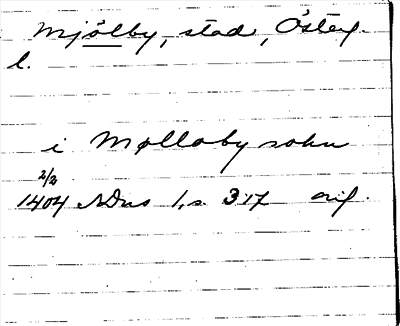 Mjölby, stad, Österg.
l.
i Mølloby sokn
2/2
1404 SDns 1, s. 317 orig.